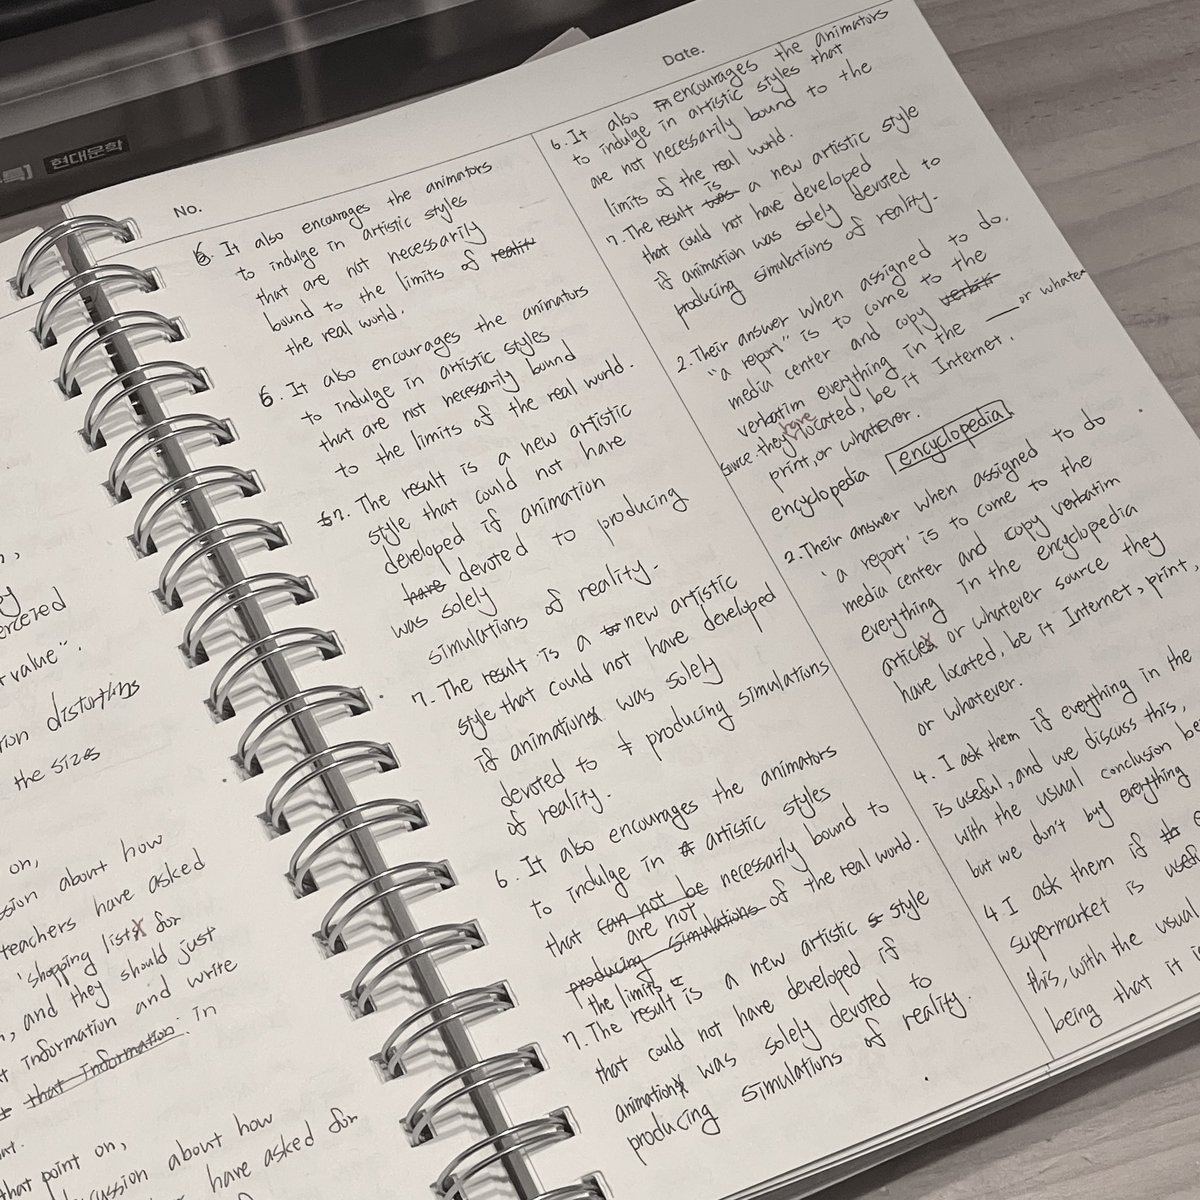 현대문학
No.
Date.
6. It also encourages the animators
to indulge in artistic styles
that are not necessarily
bound to the limits of realit
the real world.
6. It also encourages the animators
to indulge in artistic styles
that are not necessarily bound
to the limits of the real world.
7. The result is a new artistic
style that could not have
developed if animation
have devoted to producing
was solely
simulations of reality.
7. The result is a new artistic
style that could not have developed
if animation was solely
devoted to producing simulations
of reality.
6. It also encourages the animators
to indulge in artistic styles
that can not be necessarily bound to
are not
producing simulations of the real world.
the limits
7. The result is a new artistic style
that could not have developed if
animation was solely devoted to
producing simulations of reality.
6. It also encourages the animators
to indulge in artistic styles that
are not necessarily bound to the
limits of the real world.
is
7. The result was a new artistic style
that could not have developed
if animation was solely devoted to
producing simulations of reality.
2. Their answer when assigned to do.
"a report" is to come to the
media center and copy
verbatim everything in the __ or whatev
source. they have located, be it Internet,
print, or whatever.
encyclopedia encyclopedia
2. Their answer when assigned to do
'a report' is to come to the
media center and copy verbatim
everything in the encyclopedia
article or whatever source they
have located, be it Internet, print,
or whatever.
4. I ask them if everything in the
is useful, and we discuss this,
with the usual conclusion be
but we don't buy everything
4 I ask them if
supermarket is usef
this, with the usual
being that it i
value".
distortins
the sizes
on,
ssion about how
teachers have asked
'shopping list for
, and they should just
information and write
that information. in
that point on,
cussion about how
have asked for